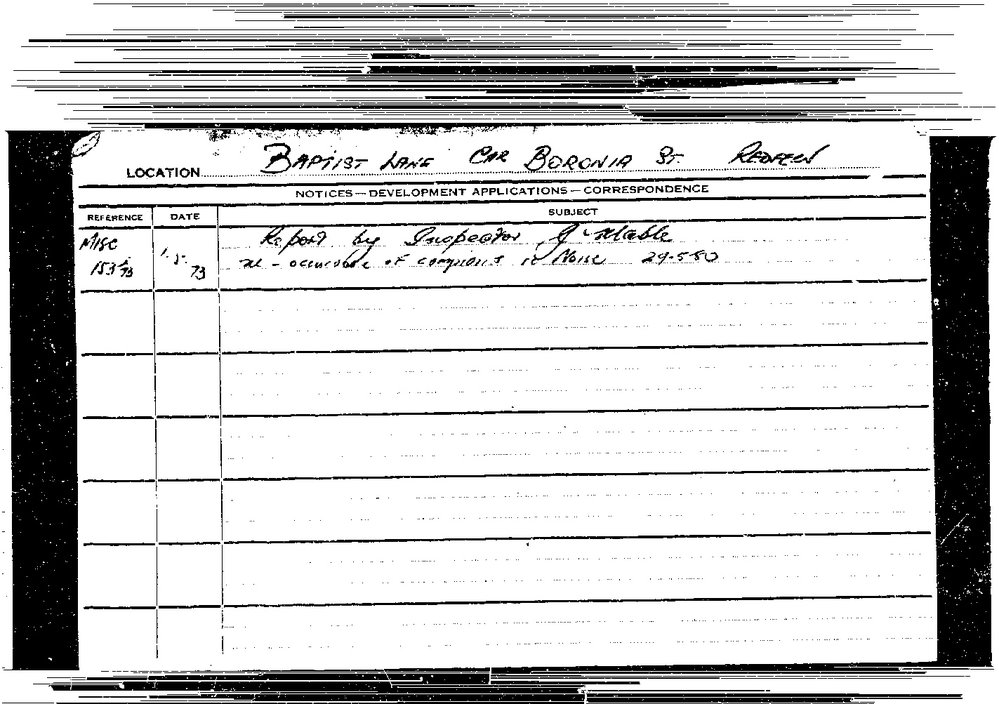 LOCATION BAPTIST LANE CNR BORONIA ST. REDFERN
NOTICES—DEVELOPMENT APPLICATIONS—CORRESPONDENCE
REFERENCE DATE SUBJECT
MISC Report by Inspector
153 73 73 of complaint re Noise 29-5-80